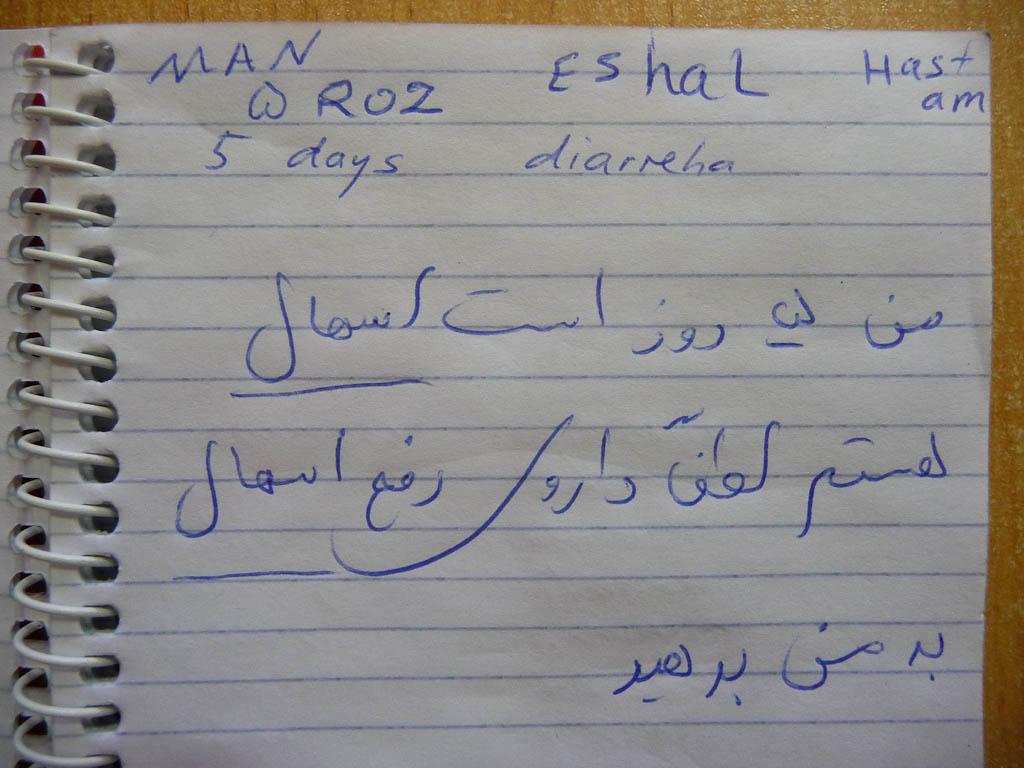 MAN ESHAL Hast
۵ ROZ am
5 days diarreha
من ۵ روز است اسهال
هستم لطفاً داروی رفع اسهال
به من بدهید